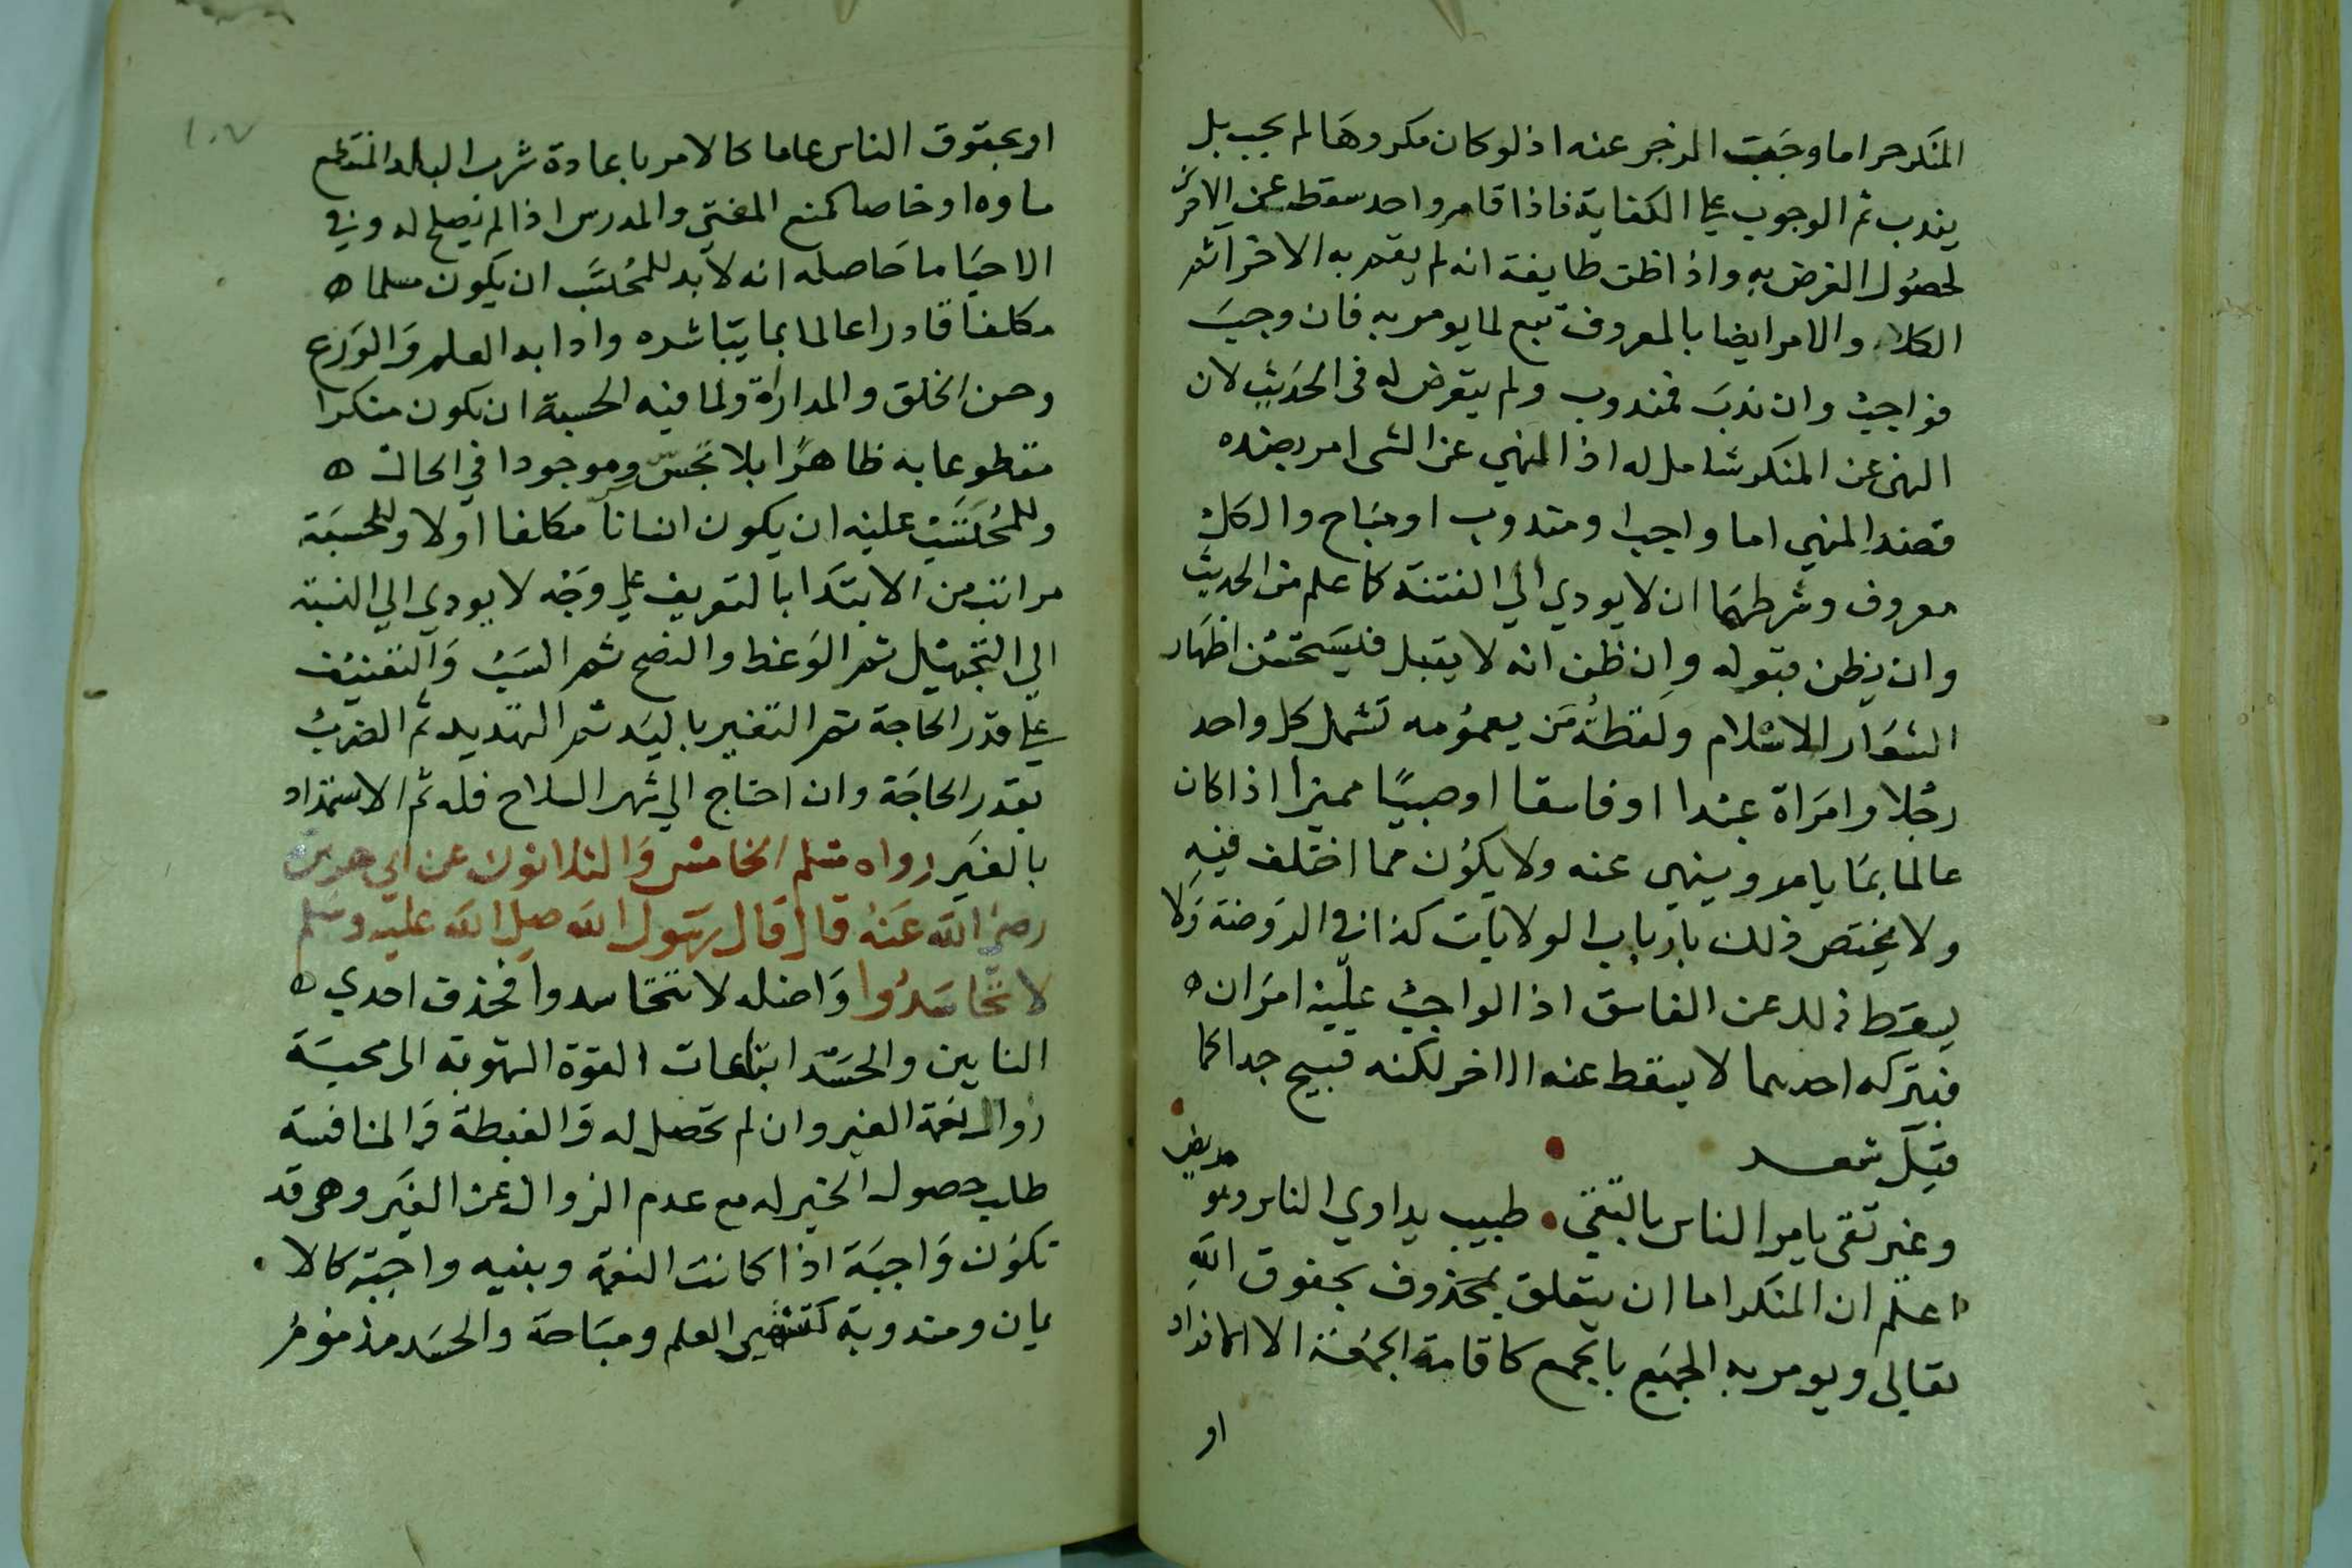 المنكر حراما وجبت الزجر عنه اذ لو كان مكروها لم يجب بل
يندب ثم الوجوب علي الكفاية فاذا قام واحد سقط عن الاخر
لحصول الغرض به واذا ظن طايفة انه لم يقم به الاخر اثم
الكلا والامر ايضا بالمعروف تبع لما يومر به فان وجب
فواجب وان ندب فمندوب ولم يتعرض له في الحديث لان
النهي عن المنكر شامل له اذ النهي عن الشي امر بضده
فضند المنهي اما واجب او مندوب او مباح والكل
معروف وشرطهما ان لا يودي الي الفتنة كما علم من الحديث
وان يظن قبوله وان ظن انه لا يقبل فيستحسن اظهار
الشعار الاسلام ولفظة من بعمومه تشمل كل واحد
رجلا وامراة عبدا او فاسقا او صبيا مميزا اذا كان
عالما بما يامر وينهي عنه ولا يكون مما اختلف فيه
ولا يختص ذلك بارباب الولايات كذا في الروضة ولا
يسقط ذلك عن الفاسق اذ الواجب عليه امران ه
فبتركه احدهما لا يسقط عنه الاخر لكنه قبيح جدا كما
قيل شعر
وغير تقي يامر الناس بالتقي • طبيب يداوي الناس وهو مريض
اعلم ان المنكر اما ان يتعلق بمحذوف بحقوق الله
تعالي ويومر به الجميع بالجمع كاقامة الجمعة الا الافراد
او
١٠٧
او بحقوق الناس عاما كالامر باعادة شرب البلد المنقطع
ماوه او خاصا كمنع المفتي والمدرس اذا لم يصلح له وفي
الاحيا ما حاصله انه لا بد للمحتسب ان يكون مسلما ه
مكلفا قادرا عالما بما يباشره وادابه العلم والورع
وحسن الخلق والمداراة ولما فيه الحسبة ان يكون منكرا
مقطوعا به ظاهرا بلا تجسس وموجودا في الحال ه
وللمحتسب عليه ان يكون انسانا مكلفا اولا وللحسبة
مراتب من الابتدا بالتعريف علي وجه لا يودي الي النسبة
الي التجهيل ثم الوعظ والنصح ثم السب والتعنيف
علي قدر الحاجة ثم التغيير باليد ثم التهديد ثم الضرب
بقدر الحاجة وان احتاج الي شهر السلاح فله ثم الاستمداد
بالغير رواه مسلم الخامس والثلاثون عن ابي هريرة
رضي الله عنه قال قال رسول الله صلي الله عليه وسلم
لا تحاسدوا واصله لا تتحاسدوا فحذف احدي ه
التايين والحسد ابتاعات القوة الشهوية الي محبة
زوال نعمة الغير وان لم تحصل له والغبطة والمنافسة
طلب حصول الخير له مع عدم الزوال عن الغير وهي قد
تكون واجبة اذا كانت النعمة وبنيه واجبة كالا •
يمان ومندوبة كتشهير العلم ومباحة والحسد مذموم